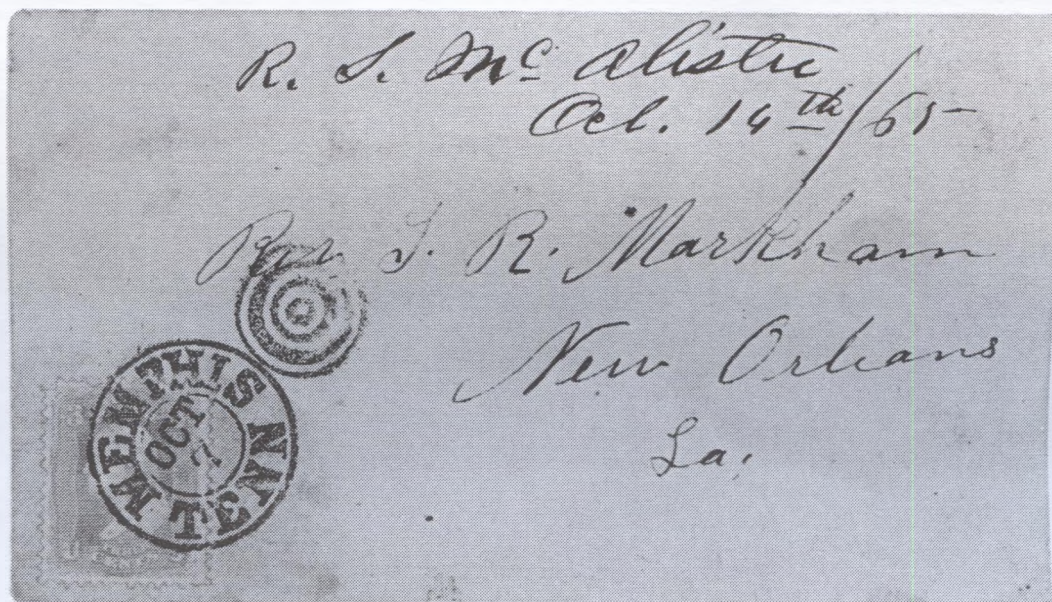 R. S. Mc Alistre
Oct. 14th/65
Rev. T. R. Markham
New Orleans
La.
MEMPHIS TENN
OCT
7